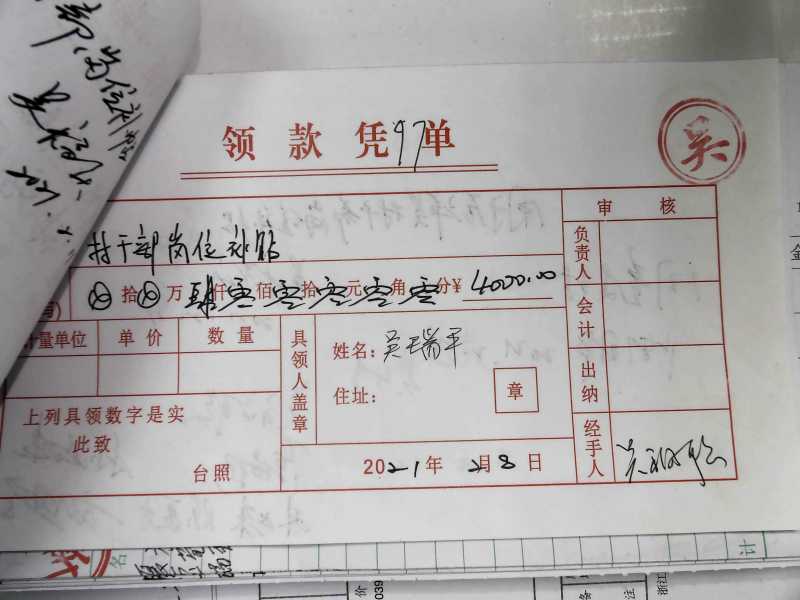 部岗位补贴
领款凭单
97
吴
村干部岗位补贴
审核
负责人
拾 万 肆仟零佰零拾零元零角零分¥4000.00
会计
计量单位 单价 数量
具领人盖章
姓名：吴瑞平
住址：
章
出纳
上列具领数字是实
此致
台照
2021年2月8日
经手人
名
计
价
039
备注
浙江
金